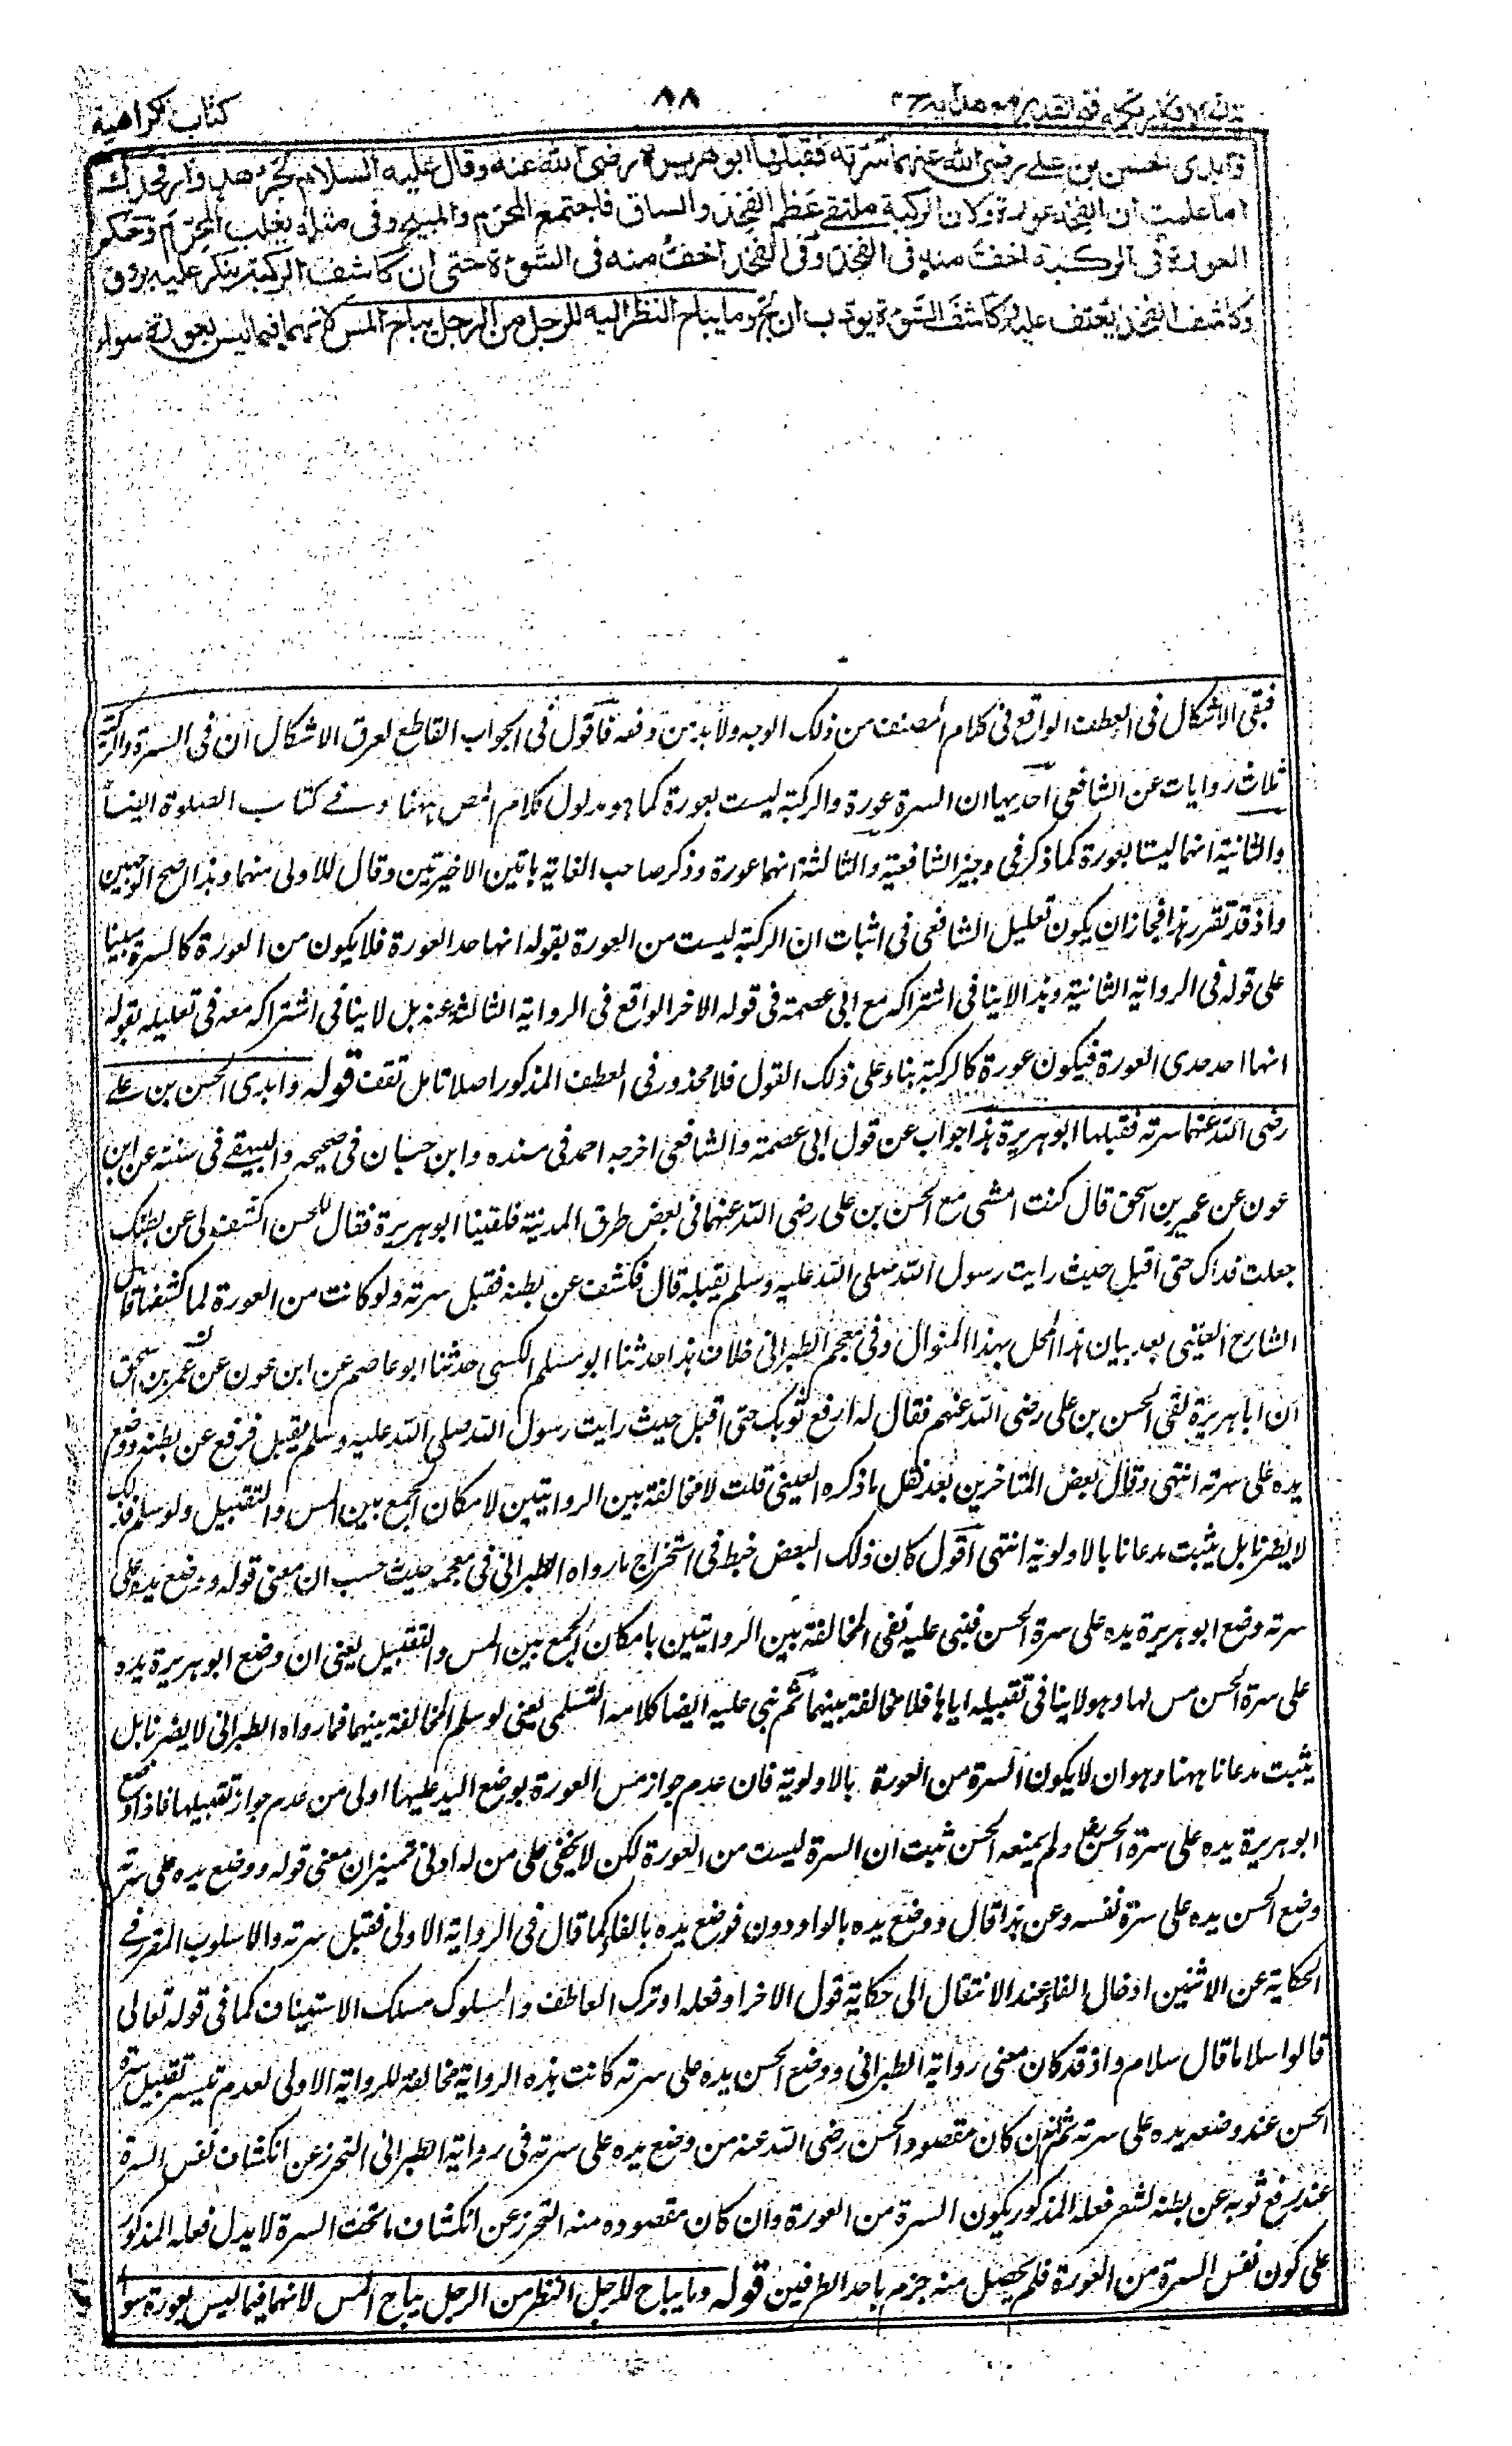 كتاب كراهية
٨٨
نتائج الافكار تكملة فتح القدير مع هداية ج ٤
وابدى الحسن بن على رضى الله عنهما سرته فقبلها ابو هريرة رضى الله عنه وقال عليه السلام لجرهد وار فخذك
اما علمت ان الفخذ عورة ولان الركبة ملتقى عظم الفخذ والساق فاجتمع المحرم والمبيح وفى مثله يغلب المحرم وحكم
العورة فى الركبة اخف منه فى الفخذ وفى الفخذ اخف منه فى السوءة حتى ان كاشف الركبة ينكر عليه برفق
وكاشف الفخذ يعنف عليه وكاشف السوءة يؤدب ان لج وما يباح النظر اليه للرجل من الرجل يباح المس لانهما فيما ليس بعورة سواء
فبقى الاشكال فى العطف الواقع فى كلام المصنف من ذلك الوجه ولا بد من دفعه فاقول فى الجواب القاطع لعرق الاشكال ان فى السرة والركبة
ثلاث روايات عن الشافعى احديها ان السرة عورة والركبة ليست بعورة كما هو مدلول كلام المص ههنا وفى كتاب الصلوة ايضا
والثانية انهما ليستا بعورة كما ذكر فى وجيز الشافعية والثالثة انهما عورة وذكر صاحب الغاية هاتين الاخيرتين وقال للاولى منهما وهذا اصح الوجهين
واذ قد تقرر هذا فيجاز ان يكون تعليل الشافعى فى اثبات ان الركبة ليست من العورة بقوله انها حد العورة فلا يكون من العورة كالسرة مبينا
على قوله فى الرواية الثانية وهذا لا ينافى اشتراكه مع ابى عصمة فى قوله الاخر الواقع فى الرواية الثالثة عنه بل لا ينافى اشتراكه معه فى تعليله بقوله
انها احد حدى العورة فيكون عورة كالركبة بناء على ذلك القول فلا محذور فى العطف المذكور اصلا تامل تقف قوله وابدى الحسن بن على
رضى الله عنهما سرته فقبلها ابو هريرة هذا جواب عن قول ابى عصمة والشافعى اخرجه احمد فى مسنده وابن حبان فى صحيحه والبيهقى فى سننه عن ابن
عون عن عمير بن اسحق قال كنت امشى مع الحسن بن على رضى الله عنهما فى بعض طرق المدينة فلقينا ابو هريرة فقال للحسن اكشف لى عن بطنك
جعلت فداك حتى اقبل حيث رايت رسول الله صلى الله عليه وسلم يقبله قال فكشف عن بطنه فقبل سرته ولو كانت من العورة لما كشفها قال
الشارح العينى بعد بيان هذا المحل بهذا المنوال وفى معجم الطبرانى خلاف هذا حدثنا ابو مسلم الكسى حدثنا ابو عاصم عن ابن عون عن عمير بن اسحق
ان ابا هريرة لقى الحسن بن على رضى الله عنهم فقال له ارفع ثوبك حتى اقبل حيث رايت رسول الله صلى الله عليه وسلم يقبل فرفع عن بطنه ووضع
يده على سرته انتهى وقال بعض المتاخرين بعد نقل ما ذكره العينى قلت لا مخالفة بين الروايتين لامكان الجمع بين المس والتقبيل ولو سلم فذلك
لا يضرنا بل يثبت مدعانا بالاولوية انتهى اقول كان ذلك البعض خبط فى استخراج ما رواه الطبرانى فى معجمه حيث حسب ان معنى قوله ووضع يده على
سرته وضع ابو هريرة يده على سرة الحسن فبنى عليه نفى المخالفة بين الروايتين بامكان الجمع بين المس والتقبيل يعنى ان وضع ابو هريرة يده
على سرة الحسن مس لها وهو لا ينافى تقبيله اياها فلا مخالفة بينهما ثم بنى عليه ايضا كلامه التسلمى يعنى لو سلم المخالفة بينهما فما رواه الطبرانى لا يضرنا بل
يثبت مدعانا ههنا وهو ان لا يكون السرة من العورة بالاولوية فان عدم جواز مس العورة بوضع اليد عليها اولى من عدم جواز تقبيلها فاذا وضع
ابو هريرة يده على سرة الحسن ولم يمنعه الحسن ثبت ان السرة ليست من العورة لكن لا يخفى على من له ادنى تمييز ان معنى قوله ووضع يده على سرته
وضع الحسن يده على سرة نفسه وعن هذا قال ووضع يده بالواو دون فوضع يده بالفاء كما قال فى الرواية الاولى فقبل سرته والاسلوب المقرر فى
الحكاية عن الاثنين ادخال الفاء عند الانتقال الى حكاية قول الاخر او فعله او ترك العاطف والسلوك مسلك الاستيناف كما فى قوله تعالى
قالوا سلاما قال سلام واذ قد كان معنى رواية الطبرانى ووضع الحسن يده على سرته كانت هذه الرواية مخالفة للرواية الاولى لعدم تيسر تقبيل سرة
الحسن عند وضعه يده على سرته ثم ان كان مقصود الحسن رضى الله عنه من وضع يده على سرته فى رواية الطبرانى التحرز عن انكشاف نفس السرة
عند رفع ثوبه عن بطنه لشعر فعله المذكور بكون السرة من العورة وان كان مقصوده منه التحرز عن انكشاف ما تحت السرة لا يدل فعله المذكور
على كون نفس السرة من العورة فلم يحصل منه جزم باحد الطرفين قوله وما يباح للرجل النظر من الرجل يباح المس لانهما فيما ليس بعورة سواء